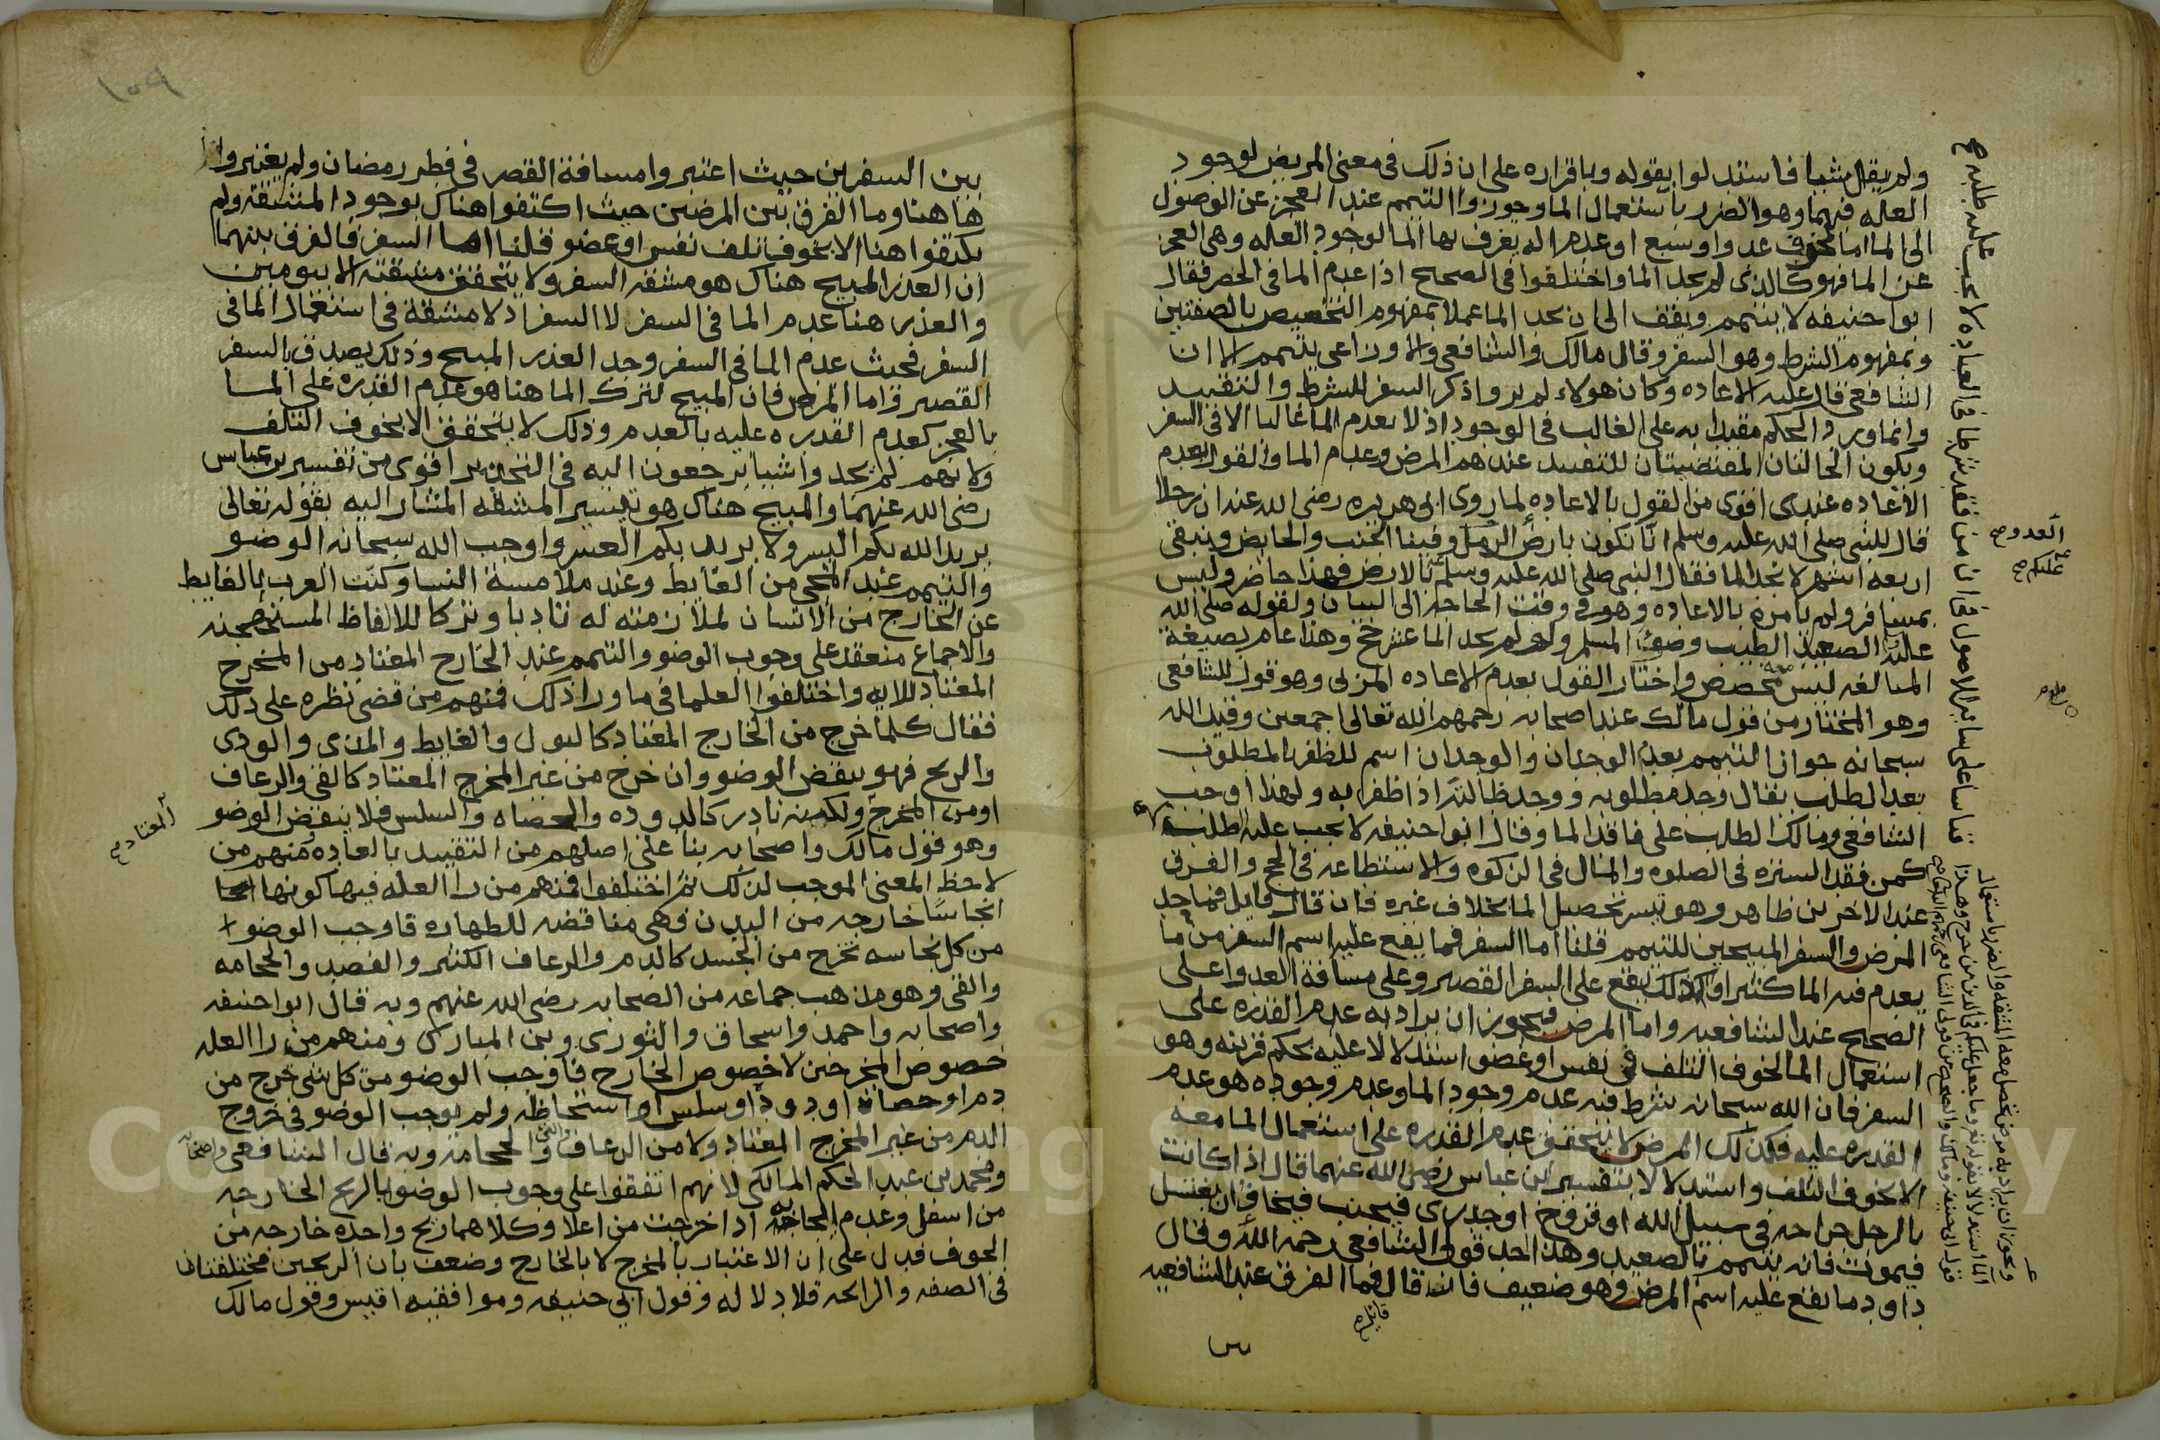 ولم يقل شيا فاستدلوا بقوله وباقراره على ان ذلك في معنى المريض لوجود
العله فيهما وهو الضرر باستعمال الما وجوزوا التيمم عند العجز عن الوصول
الى الما اما لخوف عدو او سبع او عدم اله يغرف بها الما لوجود العله وهي العجز
عن الما فهو كالذي لم يجد الما واختلفوا في الصحيح اذا عدم الما في الحضر فقال
ابو حنيفه لا يتيمم ويقف الى ان يجد الما عملا بمفهوم التخصيص بالصفتين
وبمفهوم الشرط وهو السفر وقال مالك والشافعي والاوزاعي يتيمم الا ان
الشافعي قال عليه الاعاده وكان هولاء لم يروا ذكر السفر للشرط والتقييد
وانما ورد الحكم مقيدا به على الغالب في الوجود اذ لا يعدم الما غالبا الا في السفر
ويكون الحالتان المقتضيتان للتقييد عندهم المرض وعدم الما والقول بعدم
الاعاده عندي اقوى من القول بالاعاده لما روى ابي هريره رضي الله عنه ان رجلا
قال للنبي صلى الله عليه وسلم انا نكون بارض الرمل وفينا الجنب والحايض ونبقى
اربعه اشهر لا نجد الما فقال النبي صلى الله عليه وسلم بالارض فهذا حاضر وليس
بمسافر ولم يامره بالاعاده وهو في وقت الحاجه الى البيان ولقوله صلى الله
عليه الصعيد الطيب وضوء المسلم ولو لم يجد الما عشر حجج وهذا عام بصيغة
المبالغه ليس معه مخصص واختار القول بعدم الاعاده المزني وهو قول للشافعي
وهو المختار من قول مالك عند اصحابه رحمهم الله تعالى اجمعين وقيد الله
سبحانه جواز التيمم بعدم الوجدان والوجدان اسم للظفر بالمطلوب
بعد الطلب يقال وجد مطلوبه ووجد ظالته اذا ظفر به ولهذا اوجب
الشافعي ومالك الطلب على فاقد الما وقال ابو حنيفه لا يجب عليه الطلب
كمن فقد السترة في الصلوه والمال في الزكوه والاستطاعه في الحج والفرق
عند الاخرين ظاهر وهو تيسر تحصيل الما بخلاف غيره فان قال قايل فما حد
المرض والسفر المبيحين للتيمم قلنا اما السفر فما يقع عليه اسم السفر من ما
يعدم فيه الما كثيرا وكذلك يقع على السفر القصير وعلى مسافة العدوا على
الصحيح عند الشافعيه واما المرض فيجوز ان يراد به عدم القدره على
استعمال الما لخوف التلف في نفس او عضو استدلالا عليه بحكم قرينه وهو
السفر فان الله سبحانه شرط فيه عدم وجود الما وعدم وجوده هو عدم
القدره عليه فكذلك المرض لا يتحقق عدم القدره على استعمال الما معه
الا بخوف التلف واستدلالا بتفسير ابن عباس رضي الله عنهما قال اذا كانت
بالرجل جراحه في سبيل الله او قروح او جدري فيجنب فيخاف ان يغتسل
فيموت فانه يتيمم بالصعيد وهذا احد قولي الشافعي رحمه الله وقال
داود ما يقع عليه اسم المرض وهو ضعيف فان قال فما الفرق عند الشافعيه
العدو
عليكم
قايل
بين السفرين حيث اعتبروا مسافة القصر في فطر رمضان ولم يعتبروا
هاهنا وما الفرق بين المرضين حيث اكتفوا هناك بوجود المشقه ولم
يكتفوا هنا الا بخوف تلف نفس او عضو قلنا اما السفر فالفرق بينهما
ان العذر المبيح هناك هو مشقه السفر ولا يتحقق مشقته الا بيومين
والعذر هنا عدم الما في السفر لا السفر اذ لا مشقة في استعمال الما في
السفر فحيث عدم الما في السفر وجد العذر المبيح وذلك يصدق بالسفر
القصير واما المرض فان المبيح لترك الما هنا هو عدم القدره على الما
بالعجز كعدم القدره عليه بالعدم وذلك لا يتحقق الا بخوف التلف
ولانهم لم يجدوا شيا يرجعون اليه في التحديد اقوى من تفسير بن عباس
رضي الله عنهما والمبيح هناك هو تيسير المشقه المشار اليه بقوله تعالى
يريد الله بكم اليسر ولا يريد بكم العسر واوجب الله سبحانه الوضو
والتيمم عند المجي من الغايط وعند ملامسة النسا وكنت العرب بالغايط
عن الخارج من الانسان لملازمته له تادبا وتركا للالفاظ المستهجنه
والاجماع منعقد على وجوب الوضو والتيمم عند الخارج المعتاد من المخرج
المعتاد للايه واختلفوا العلما في ما ورا ذلك فمنهم من قضى نظره على ذلك
فقال كلما خرج من الخارج المعتاد كالبول والغايط والمذي والودي
والريح فهو ينقض الوضو وان خرج من غير المخرج المعتاد كالقي والرعاف
او من المخرج ولكنه نادر كالدوده والحصاه والسلس فلا ينقض الوضو
وهو قول مالك واصحابه بنا على اصلهم من التقييد بالعاده ومنهم من
لاحظ المعنى الموجب لذلك ثم اختلفوا فمنهم من را العله فيها كونها
انجاسا خارجه من البدن فهي مناقضه للطهاره فاوجب الوضو
من كل نجاسه تخرج من الجسد كالدم والرعاف الكثير والفصد والحجامه
والقي وهو مذهب جماعه من الصحابه رضي الله عنهم وبه قال ابو حنيفه
واصحابه واحمد واسحاق والثوري وبن المبارك ومنهم من را العله
خصوص المخرجين لا خصوص الخارج فاوجب الوضو من كل شي خرج من
دم او حصاه او دود او سلس او استحاظه ولم يوجب الوضو في خروج
الدم من غير المخرج المعتاد ولا من الرعاف والقي والحجامه وبه قال الشافعي واصحابه
ومحمد بن عبد الحكم المالكي لانهم اتفقوا على وجوب الوضو بالريح الخارجه
من اسفل وعدم ايجابه اذا خرجت من اعلا وكلاهما ريح واحده خارجه من
الجوف فدل على ان الاعتبار بالمخرج لا بالخارج وضعف بان الريحين مختلفتان
في الصفه والرايحه فلا دلاله وقول ابي حنيفه وموافقيه اقيس وقول مالك
المعتاد
١٥٩